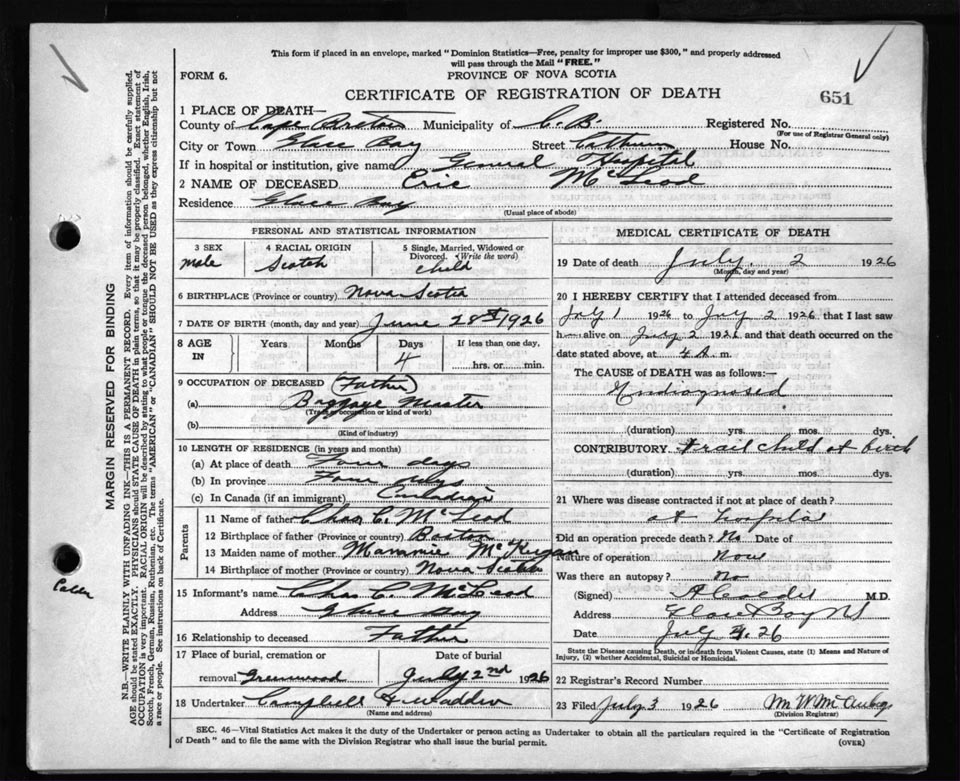 This form if placed in an envelope, marked "Dominion Statistics—Free, penalty for improper use $300," and properly addressed
will pass through the Mail "FREE."
FORM 6.
PROVINCE OF NOVA SCOTIA
CERTIFICATE OF REGISTRATION OF DEATH
651
1 PLACE OF DEATH—
County of Cape Breton Municipality of C. B. Registered No.
(For use of Registrar General only)
City or Town Glace Bay Street House No.
If in hospital or institution, give name General Hospital
2 NAME OF DECEASED Eric McLeod
Residence Glace Bay
(Usual place of abode)
PERSONAL AND STATISTICAL INFORMATION
3 SEX
male
4 RACIAL ORIGIN
Scotch
5 Single, Married, Widowed or
Divorced. (Write the word)
child
6 BIRTHPLACE (Province or country) Nova Scotia
7 DATE OF BIRTH (month, day and year) June 28th 1926
8 AGE
IN
Years
Months
Days
4
If less than one day,
hrs. or min.
9 OCCUPATION OF DECEASED (Father)
(a) Baggage Master
(Trade or occupation or kind of work)
(b)
(Kind of industry)
10 LENGTH OF RESIDENCE (in years and months)
(a) At place of death Four dys
(b) In province Four dys
(c) In Canada (if an immigrant) Canadian
Parents
11 Name of father Chas C. McLeod
12 Birthplace of father (Province or country) Boston
13 Maiden name of mother Mammie McKigan
14 Birthplace of mother (Province or country) Nova Scotia
15 Informant's name Chas C. McLeod
Address Glace Bay
16 Relationship to deceased Father
17 Place of burial, cremation or
removal Greenwood
Date of burial
July 2nd 1926
18 Undertaker Campbell
(Name and address)
MEDICAL CERTIFICATE OF DEATH
19 Date of death July 2 1926
(Month, day and year)
20 I HEREBY CERTIFY that I attended deceased from
July 1 1926 to July 2 1926 that I last saw
h alive on July 2 1926 and that death occurred on the
date stated above, at 4 A. m.
The CAUSE of DEATH was as follows:—
Undiagnosed
(duration) yrs. mos. dys.
CONTRIBUTORY Frail child at birth
(duration) yrs. mos. dys.
21 Where was disease contracted if not at place of death?
at hospital
Did an operation precede death? No Date of
Nature of operation None
Was there an autopsy? No
(Signed) M.D.
Address Glace Bay NS
Date July 26
State the Disease causing Death, or in death from Violent Causes, state (1) Means and Nature of
Injury, (2) whether Accidental, Suicidal or Homicidal.
22 Registrar's Record Number
23 Filed July 3 1926
(Division Registrar)
SEC. 46—Vital Statistics Act makes it the duty of the Undertaker or person acting as Undertaker to obtain all the particulars required in the "Certificate of Registration
of Death" and to file the same with the Division Registrar who shall issue the burial permit.
(OVER)
MARGIN RESERVED FOR BINDING
N.B.—WRITE PLAINLY WITH UNFADING INK—THIS IS A PERMANENT RECORD. Every item of information should be carefully supplied.
AGE should be stated EXACTLY. PHYSICIANS should STATE CAUSE OF DEATH in plain terms, so that it may be properly classified. Exact statement of
OCCUPATION is very important. RACIAL ORIGIN will be described by stating to what people or tongue the deceased person belonged, whether English, Irish,
Scotch, French, German, Russian, Ruthenian, etc. The terms "AMERICAN" or "CANADIAN" SHOULD NOT BE USED as they express citizenship but not
a race or people. See instructions on back of Certificate.